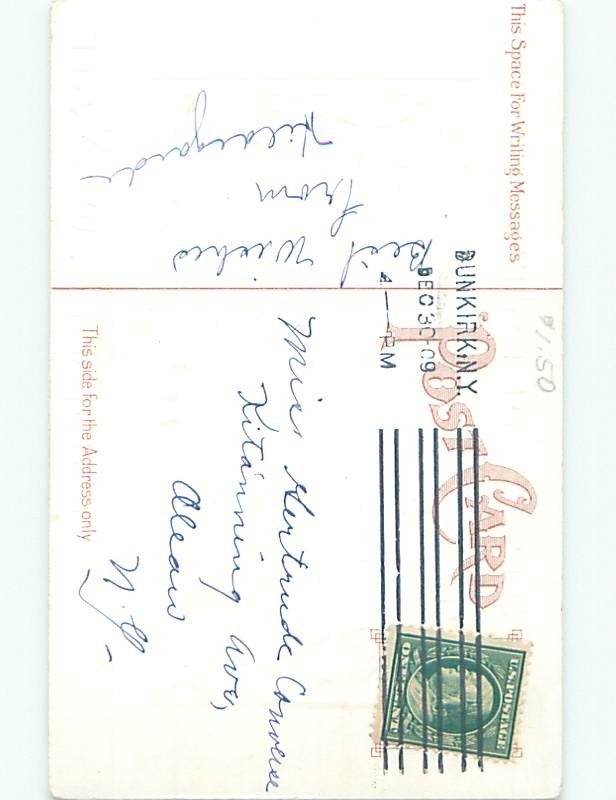 $1.50
DUNKIRK, N.Y.
DEC 30 09
4 — PM
POST CARD
This Space For Writing Messages
This side for the Address only
Best Wishes
from
Hildegarde
Miss Gertrude Converse
Kitanning Ave,
Olean
N.Y. –
U.S. POSTAGE
ONE CENT